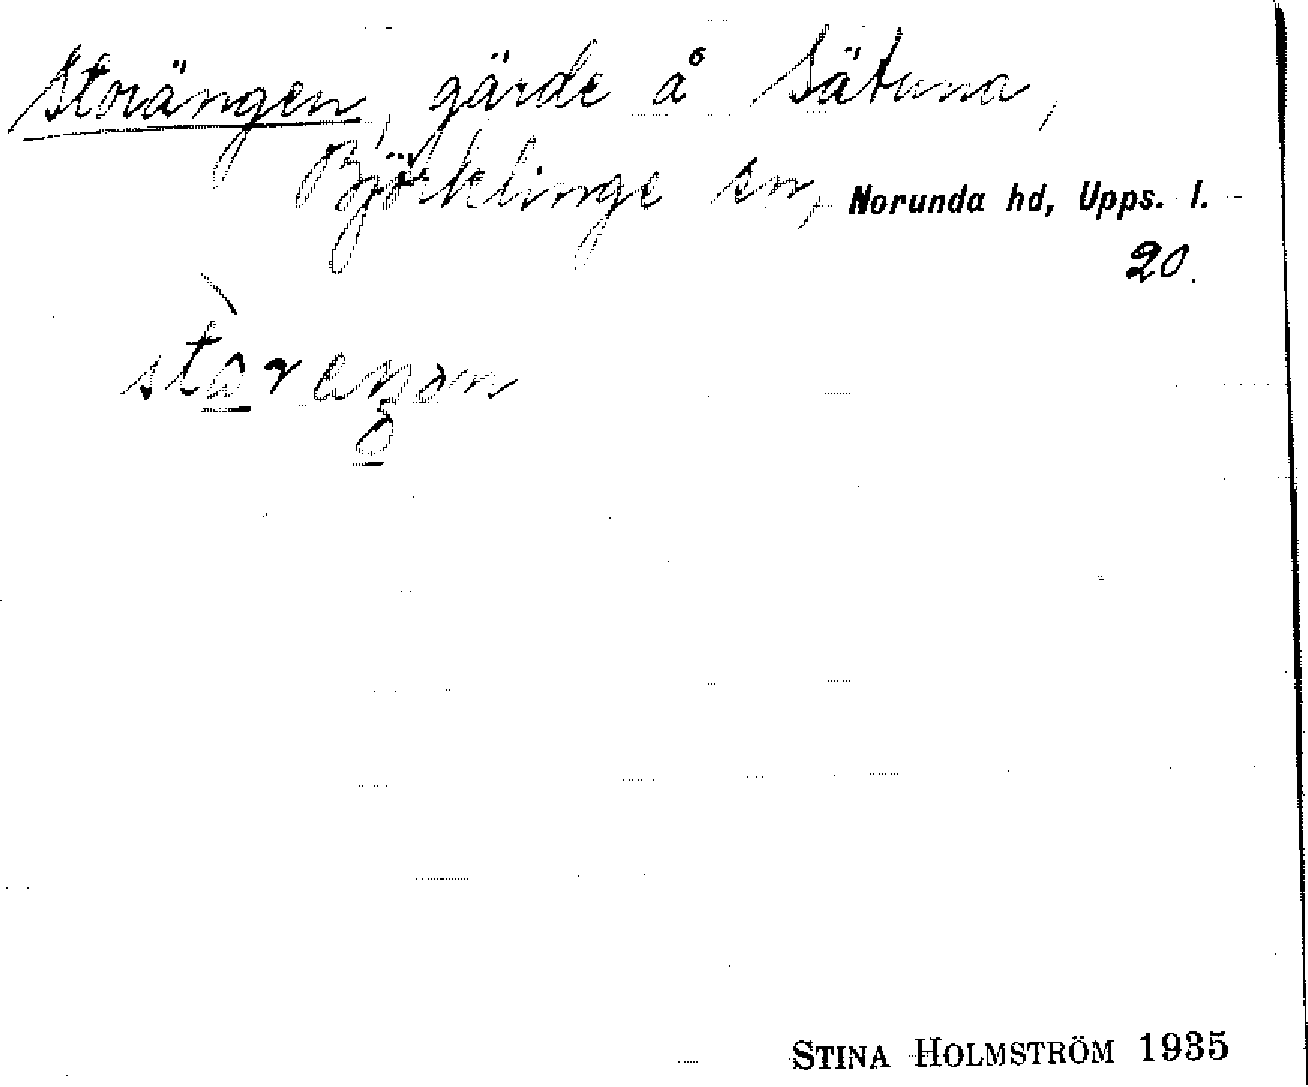 Storängen, gärde å Sätuna,
Björklinge sn, Norunda hd, Upps. l.
20.
STINA HOLMSTRÖM 1935